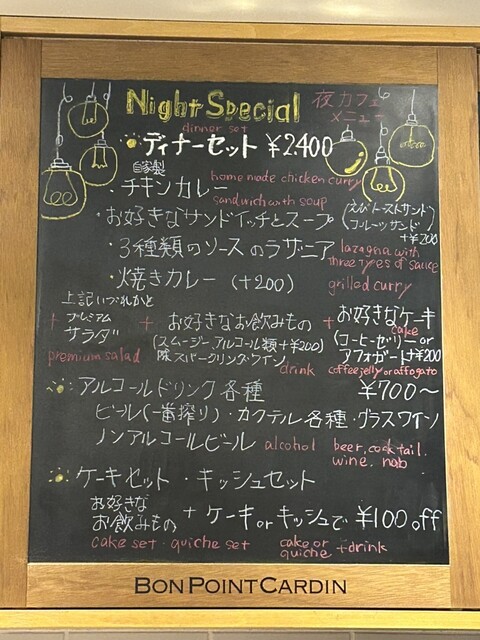 Night Special 夜カフェメニュー
dinner set
ディナーセット ¥2400
自家製
・チキンカレー homemade chicken curry
sandwich with soup
・お好きなサンドイッチとスープ (えびトーストサンド フルーツサンド +¥200
・3種類のソースのラザニア lazagna with three types of sauce
・焼きカレー (+200) grilled curry
上記いづれかと
+ プレミアムサラダ + お好きなお飲みもの + お好きなケーキ
cake
(スムージー、アルコール類+¥200) (コーヒーゼリー or
除スパークリング・ワイン アフォガート+¥200
premium salad drink coffee jelly or affogato
アルコールドリンク各種 ¥700〜
ビール(一番搾り)・カクテル各種・グラスワイン
ノンアルコールビール alcohol beer, cocktail. wine. nab
ケーキセット・キッシュセット
お好きなお飲みもの + ケーキ or キッシュで ¥100 off
cake set・quiche set cake or quiche + drink
BON POINT CARDIN